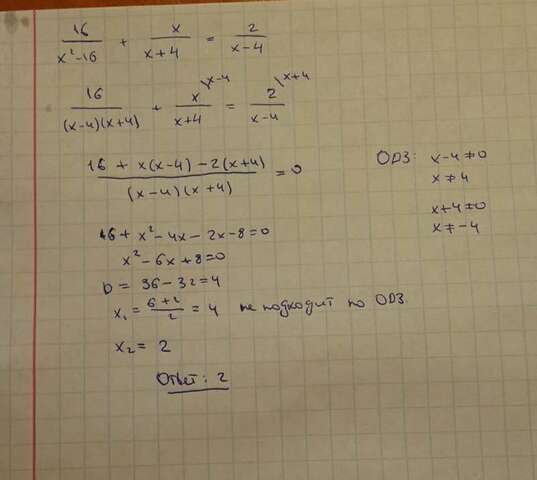 16/(x²-16) + x/(x+4) = 2/(x-4)
16/((x-4)(x+4)) + x\x-4/(x+4) = 2\x+4/(x-4)
(16 + x(x-4) - 2(x+4))/((x-4)(x+4)) = 0
ОДЗ: x-4≠0
x≠4
x+4≠0
x≠-4
16 + x²-4x-2x-8=0
x²-6x+8=0
D = 36-32=4
x₁ = (6+2)/2 = 4 не подходит по ОДЗ.
x₂ = 2
Ответ: 2